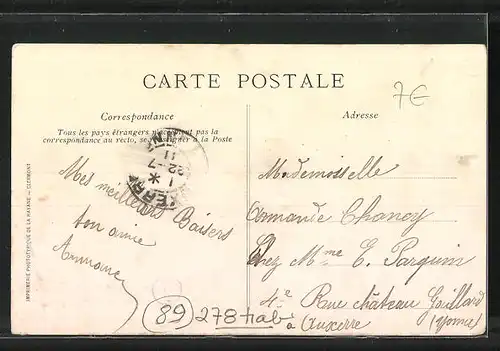 CARTE POSTALE
7€
Correspondance
Adresse
Tous les pays étrangers n'acceptent pas la
correspondance au recto, se renseigner à la Poste
Mademoiselle
Mes meilleurs Baisers
ton amie
Armande Chancy
Chez Mme E. Parquin
4e Rue château Gaillard
à Auxerre
(Yonne)
89 278 hab
IMPRIMERIE PHOTOTYPIQUE DE LA MAYENNE — CLERMONT